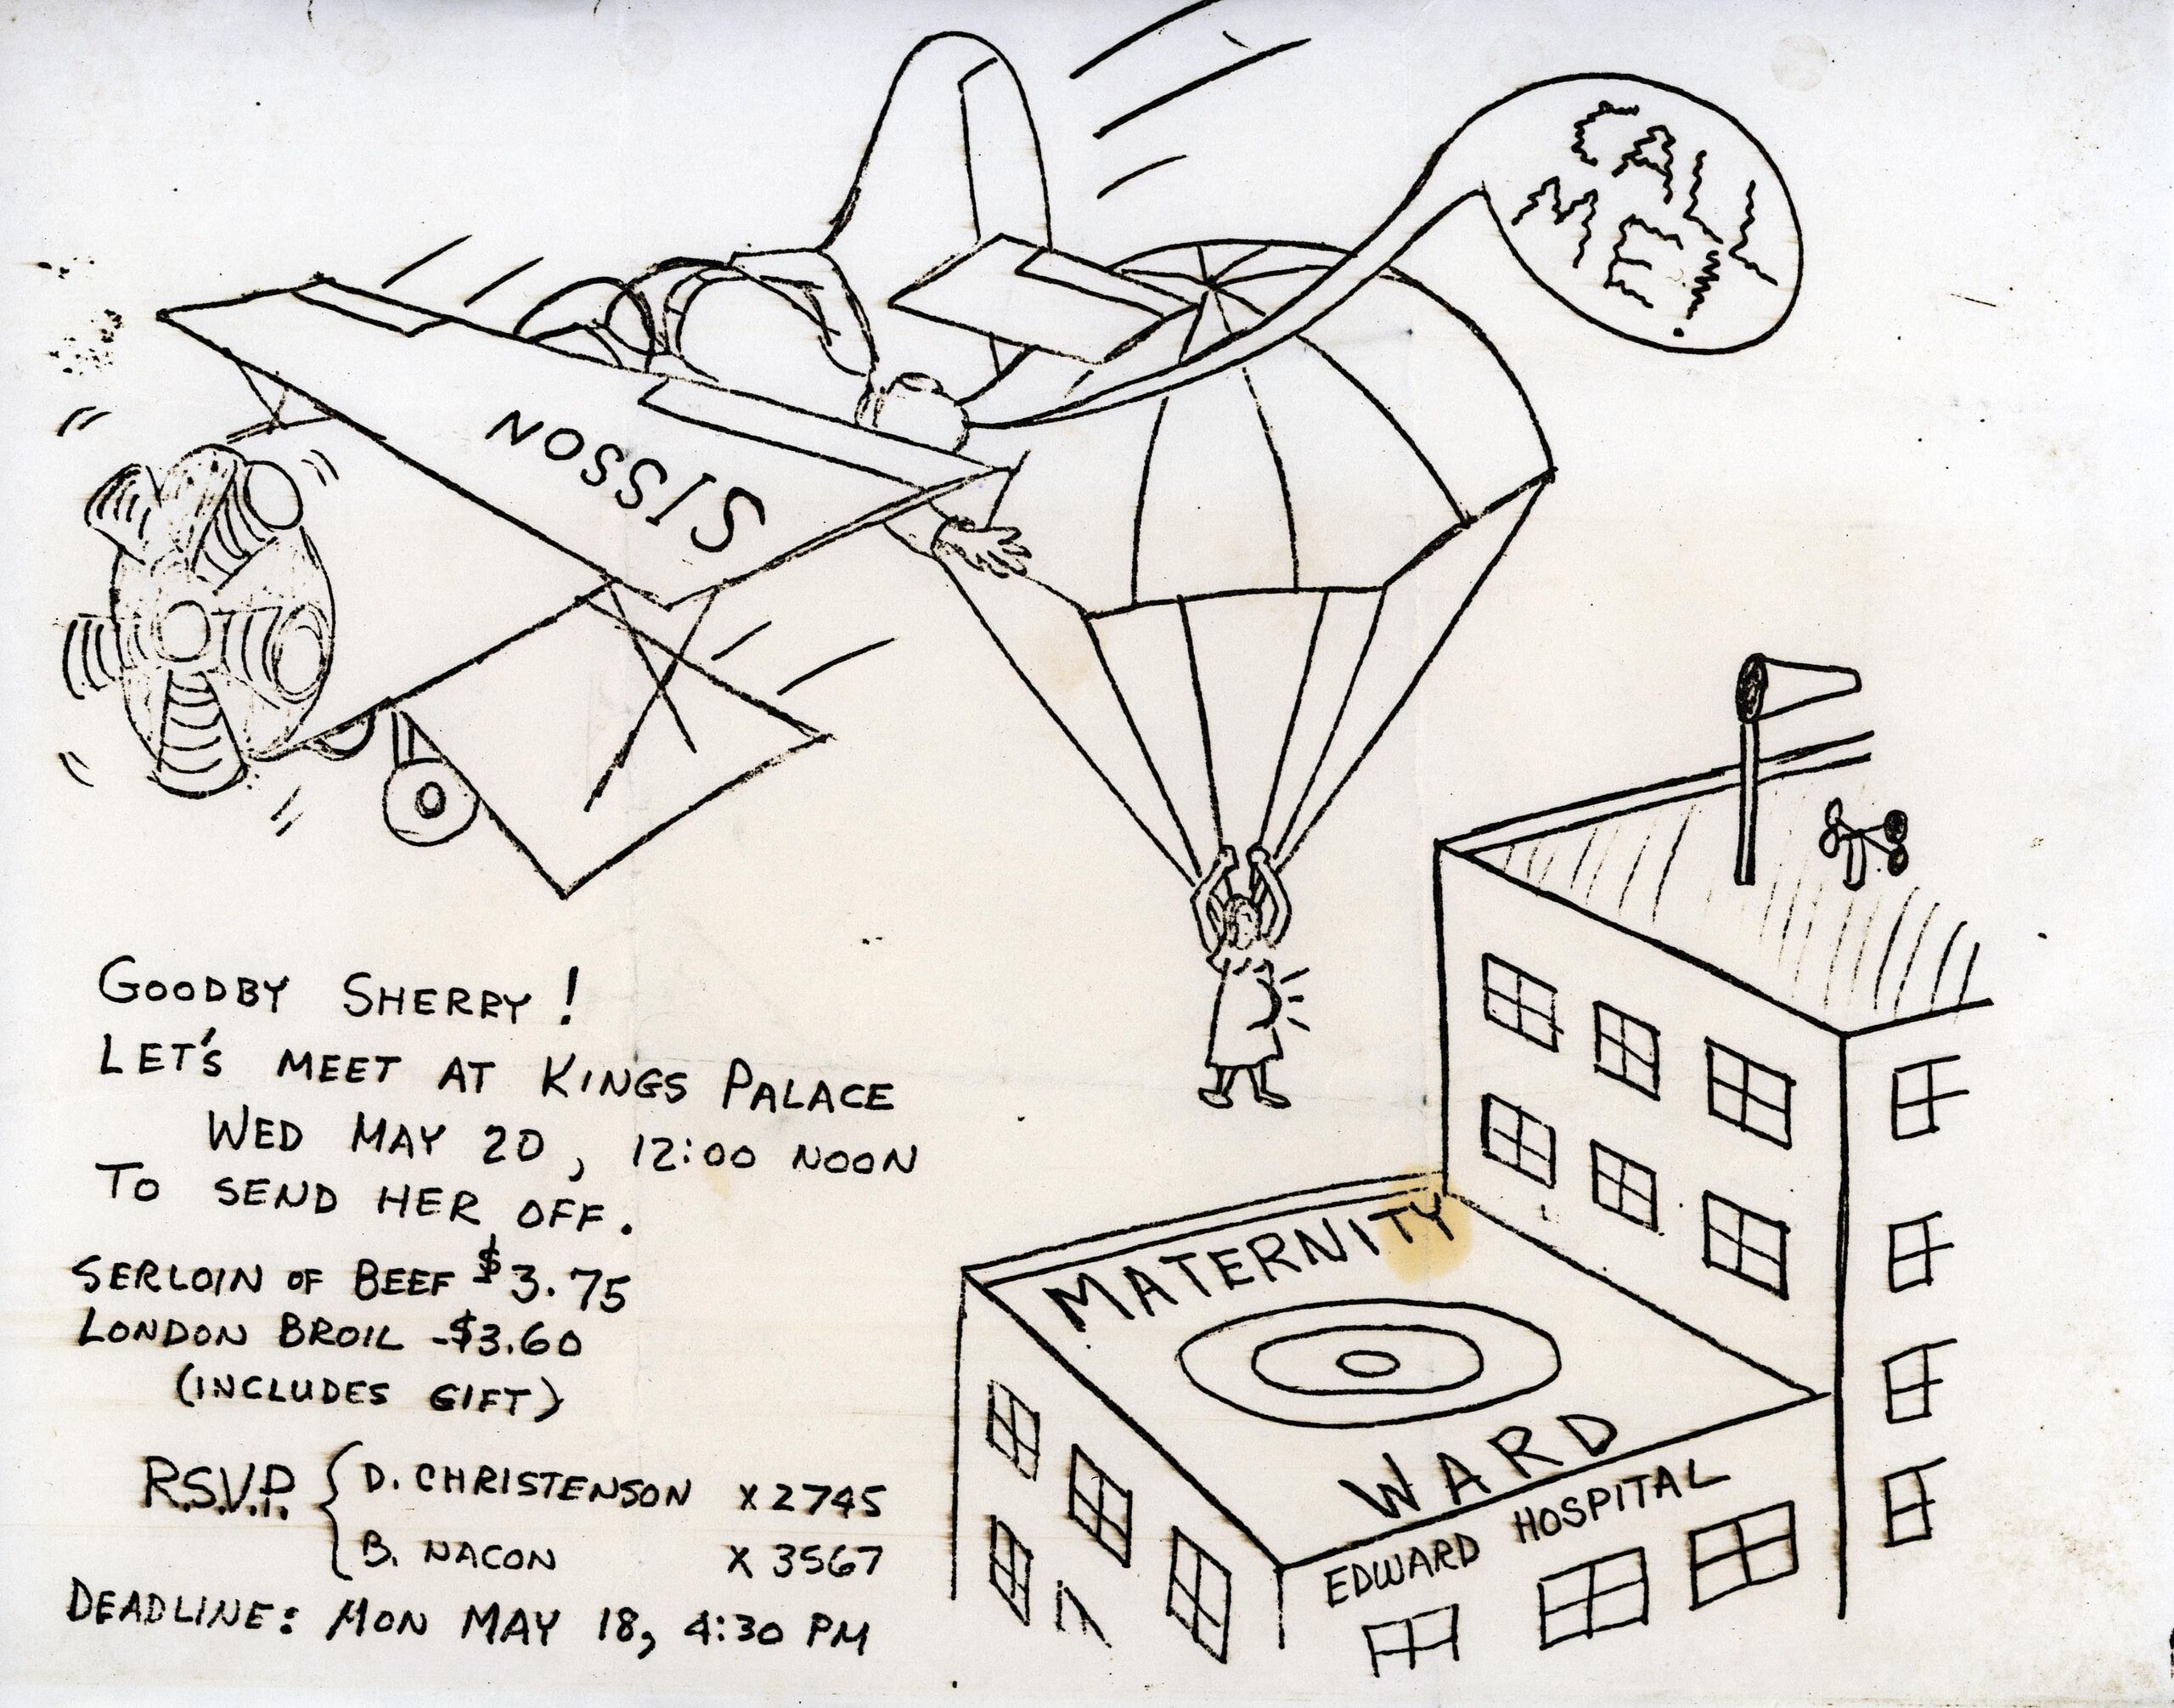 CALL
ME!
SISSON
GOODBY SHERRY!
LET'S MEET AT KINGS PALACE
WED MAY 20, 12:00 NOON
TO SEND HER OFF.
SERLOIN OF BEEF $3.75
LONDON BROIL -$3.60
(INCLUDES GIFT)
R.S.V.P. { D. CHRISTENSON X2745
B. NACON X3567
DEADLINE: MON MAY 18, 4:30 PM
MATERNITY
WARD
EDWARD HOSPITAL